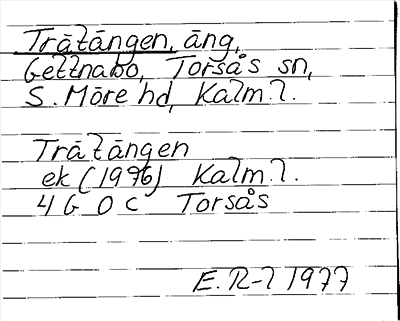 Trätängen, äng,
Gettnabo, Torsås sn,
S. Möre hd, Kalm. l.
Trätängen
ek (1976) Kalm. l.
4G 0c Torsås
E. R-l 1977